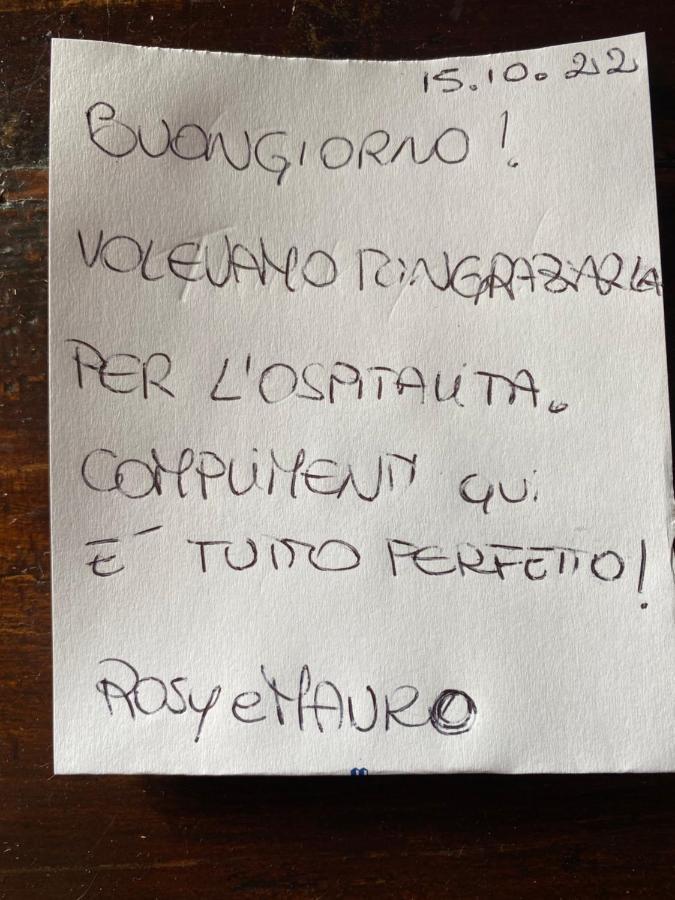 15.10.22
BUONGIORNO!
VOLEVAMO RINGRAZIARLA
PER L'OSPITALITA.
COMPLIMENTI QUI
E' TUTTO PERFETTO!
ROSY e MAURO